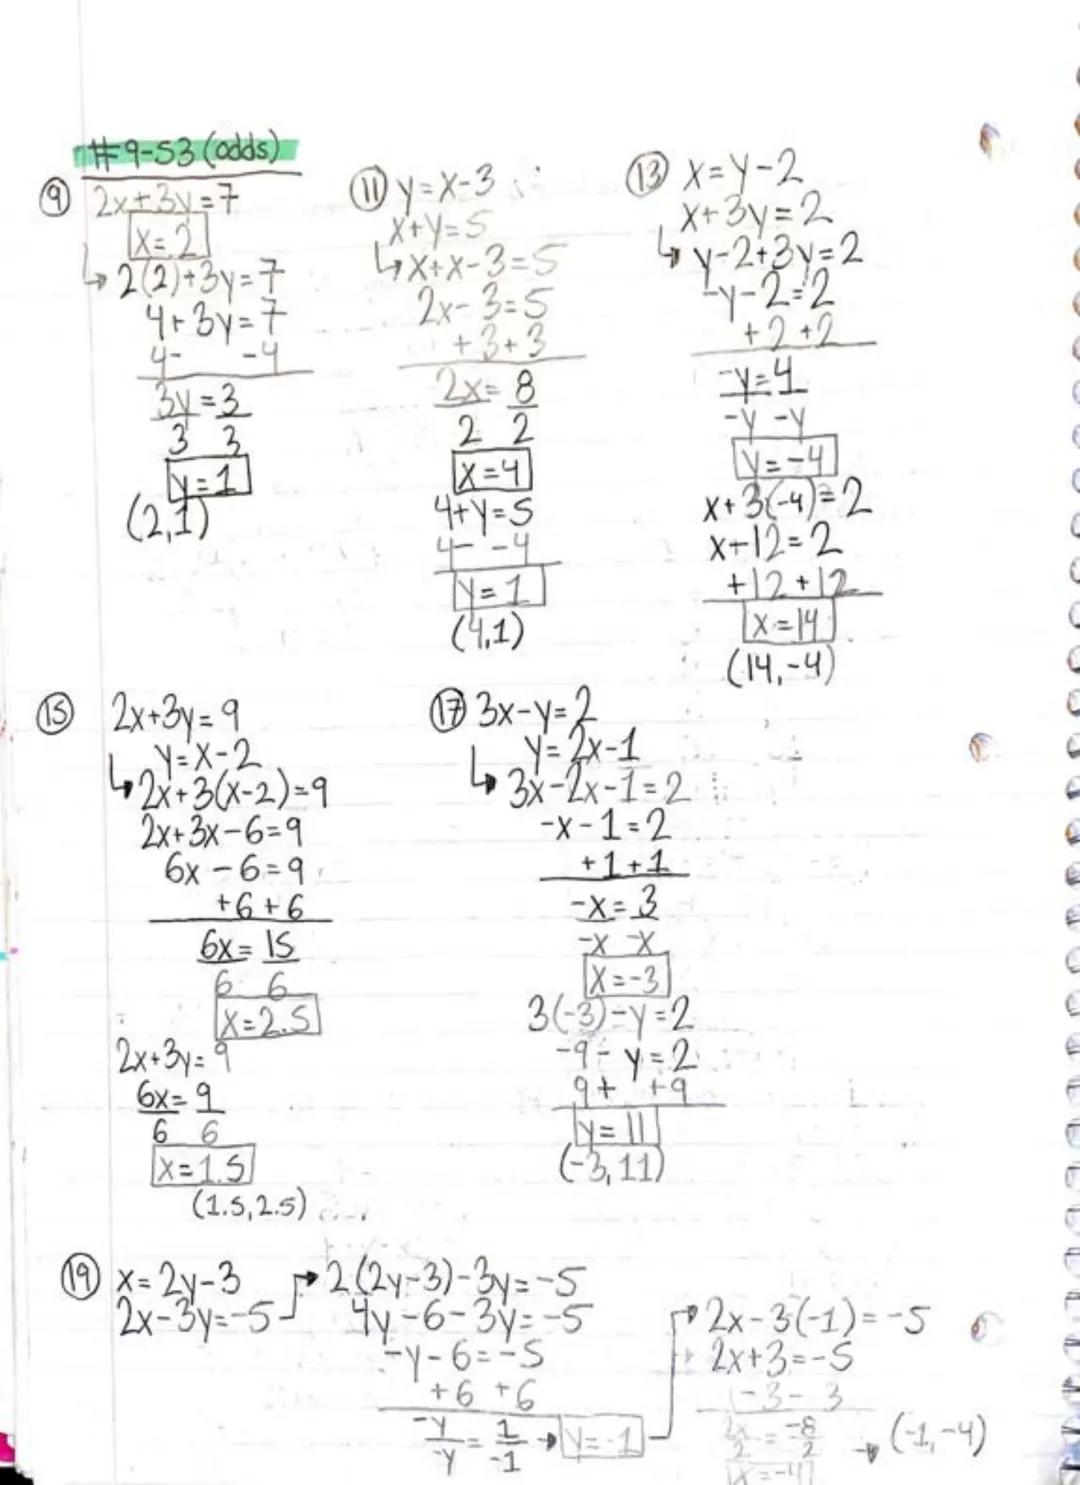 #9-53 (odds)
9 2x+3y=7
x=2
2(2)+3y=7
4+3y=7
4- -4
3y=3
3 3
y=1
(2,1)
11 y=x-3
x+y=5
x+x-3=5
2x-3=5
+3+3
2x=8
2 2
x=4
4+y=5
4- -4
y=1
(4,1)
13 x=y-2
x+3y=2
y-2+3y=2
-y-2=2
+2 +2
-y=4
-y -y
y=-4
x+3(-4)=2
x-12=2
+12+12
x=14
(14,-4)
15 2x+3y=9
y=x-2
2x+3(x-2)=9
2x+3x-6=9
6x-6=9
+6+6
6x=15
6 6
x=2.5
2x+3y=9
6x=9
6 6
x=1.5
(1.5,2.5)
17 3x-y=2
y=2x-1
3x-2x-1=2
-x-1=2
+1+1
-x=3
-x -x
x=-3
3(-3)-y=2
-9-y=2
9+ +9
y=11
(-3,11)
19 x=2y-3
2x-3y=-5
2(2y-3)-3y=-5
4y-6-3y=-5
-y-6=-5
+6 +6
-y = 1 → y=-1
-y -1
2x-3(-1)=-5
2x+3=-5
-3- 3
2x = -8
2 2
x=-4
→ (-1,-4)